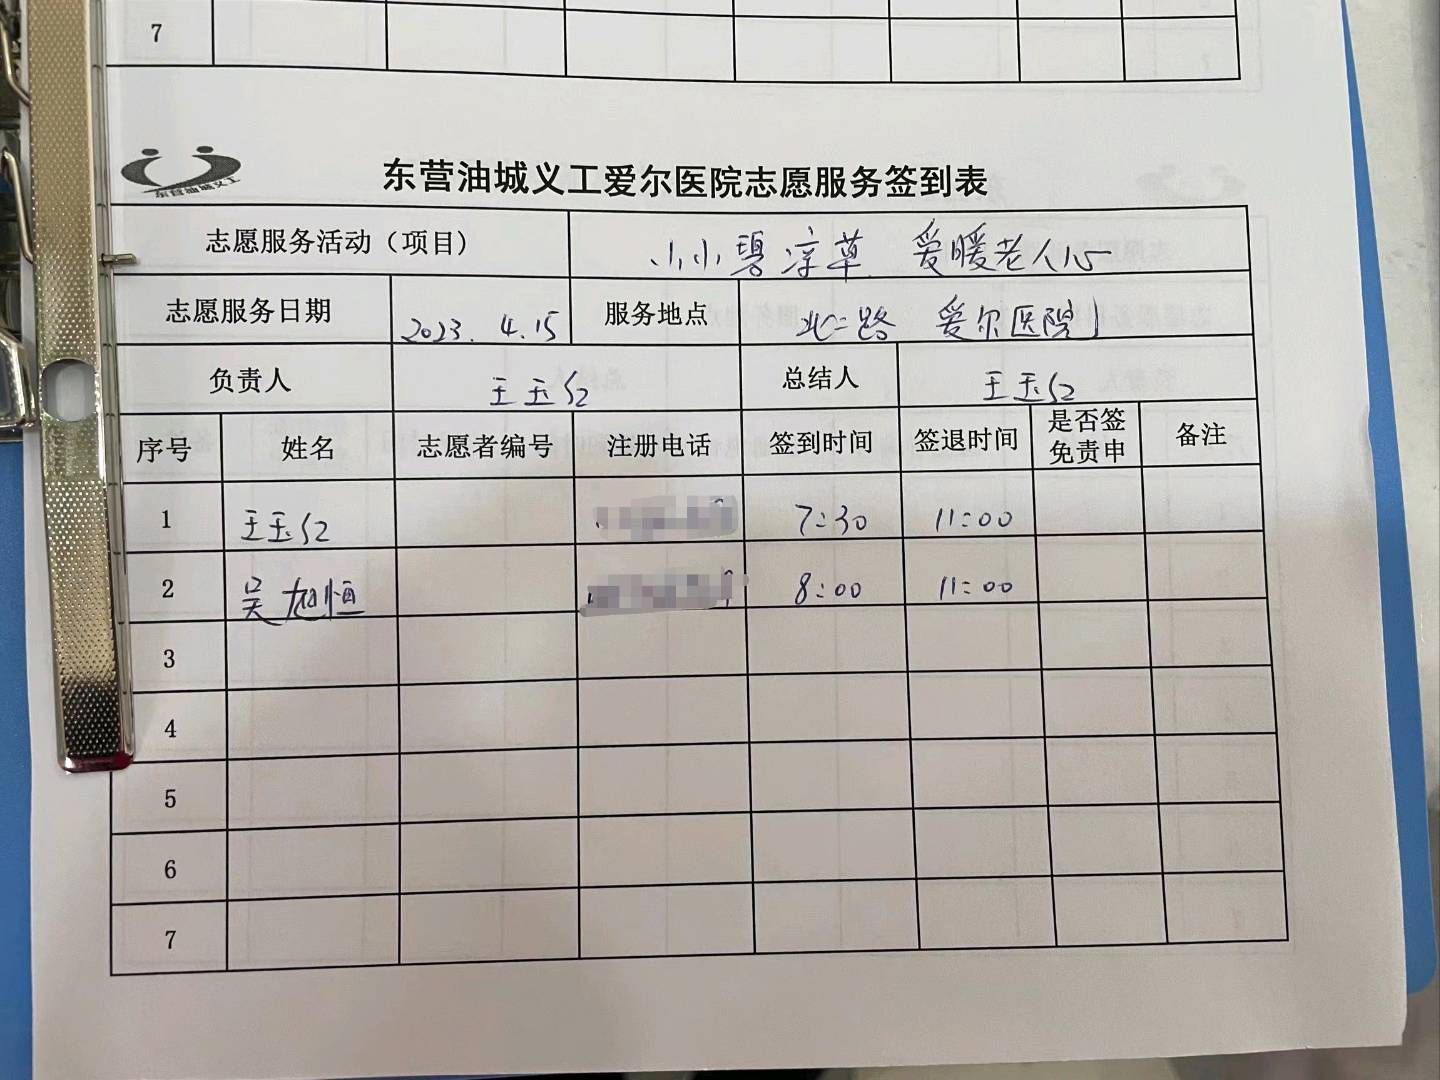 7
东营油城义工
东营油城义工爱尔医院志愿服务签到表
志愿服务活动（项目） 小小碧凉草 爱暖老人心
志愿服务日期 2023.4.15 服务地点 北二路 爱尔医院
负责人 王玉红 总结人 王玉红
序号 姓名 志愿者编号 注册电话 签到时间 签退时间 是否签 备注
免责申
1 王玉红 7:30 11:00
2 吴旭恒 8:00 11:00
3
4
5
6
7